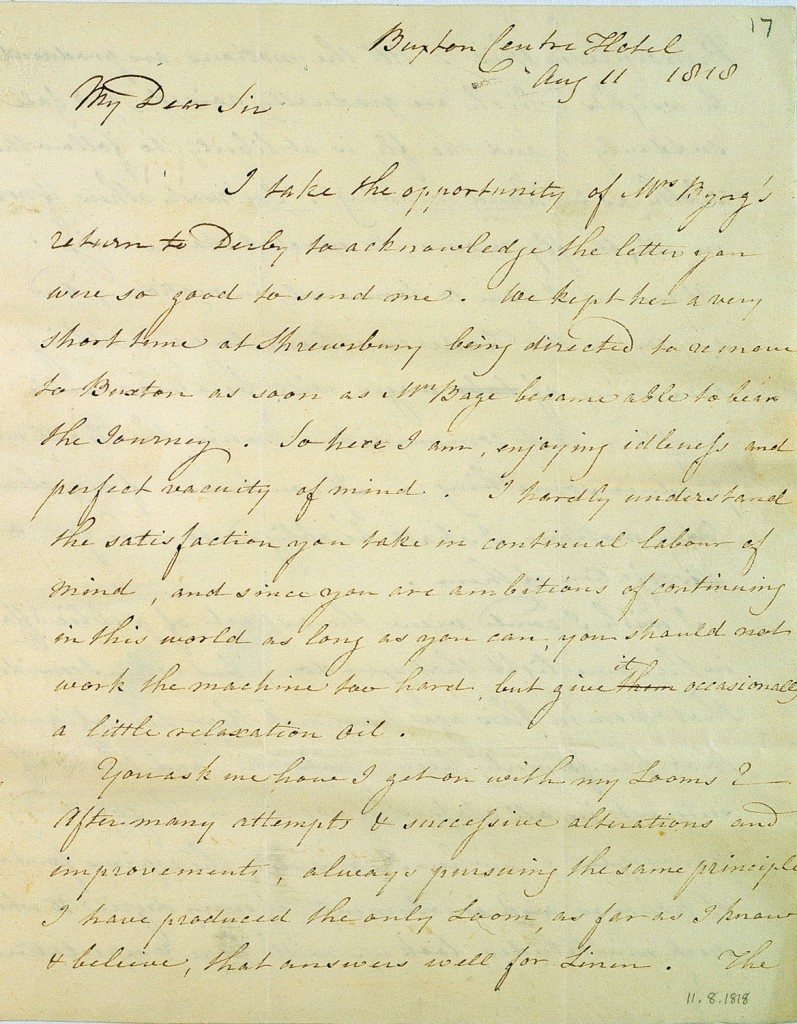 17
Buxton Centre Hotel
Aug 11 1818
My Dear Sir
I take the opportunity of Mrs Byrg's
return to Derby to acknowledge the letter you
were so good to send me. We kept her a very
short time at Shrewsbury being directed to remove
to Buxton as soon as Mrs Bage became able to bear
the Journey. So here I am, enjoying idleness and
perfect vacuity of mind. I hardly understand
the satisfaction you take in continual labour of
mind, and since you are ambitious of continuing
in this world as long as you can, you should not
work the machine too hard, but give it them occasionally
a little relaxation oil.
You ask me how I get on with my Looms?
After many attempts & successive alterations and
improvements, always pursuing the same principle
I have produced the only Loom, as far as I know
& beleive, that answers well for Linen. The
11.8.1818